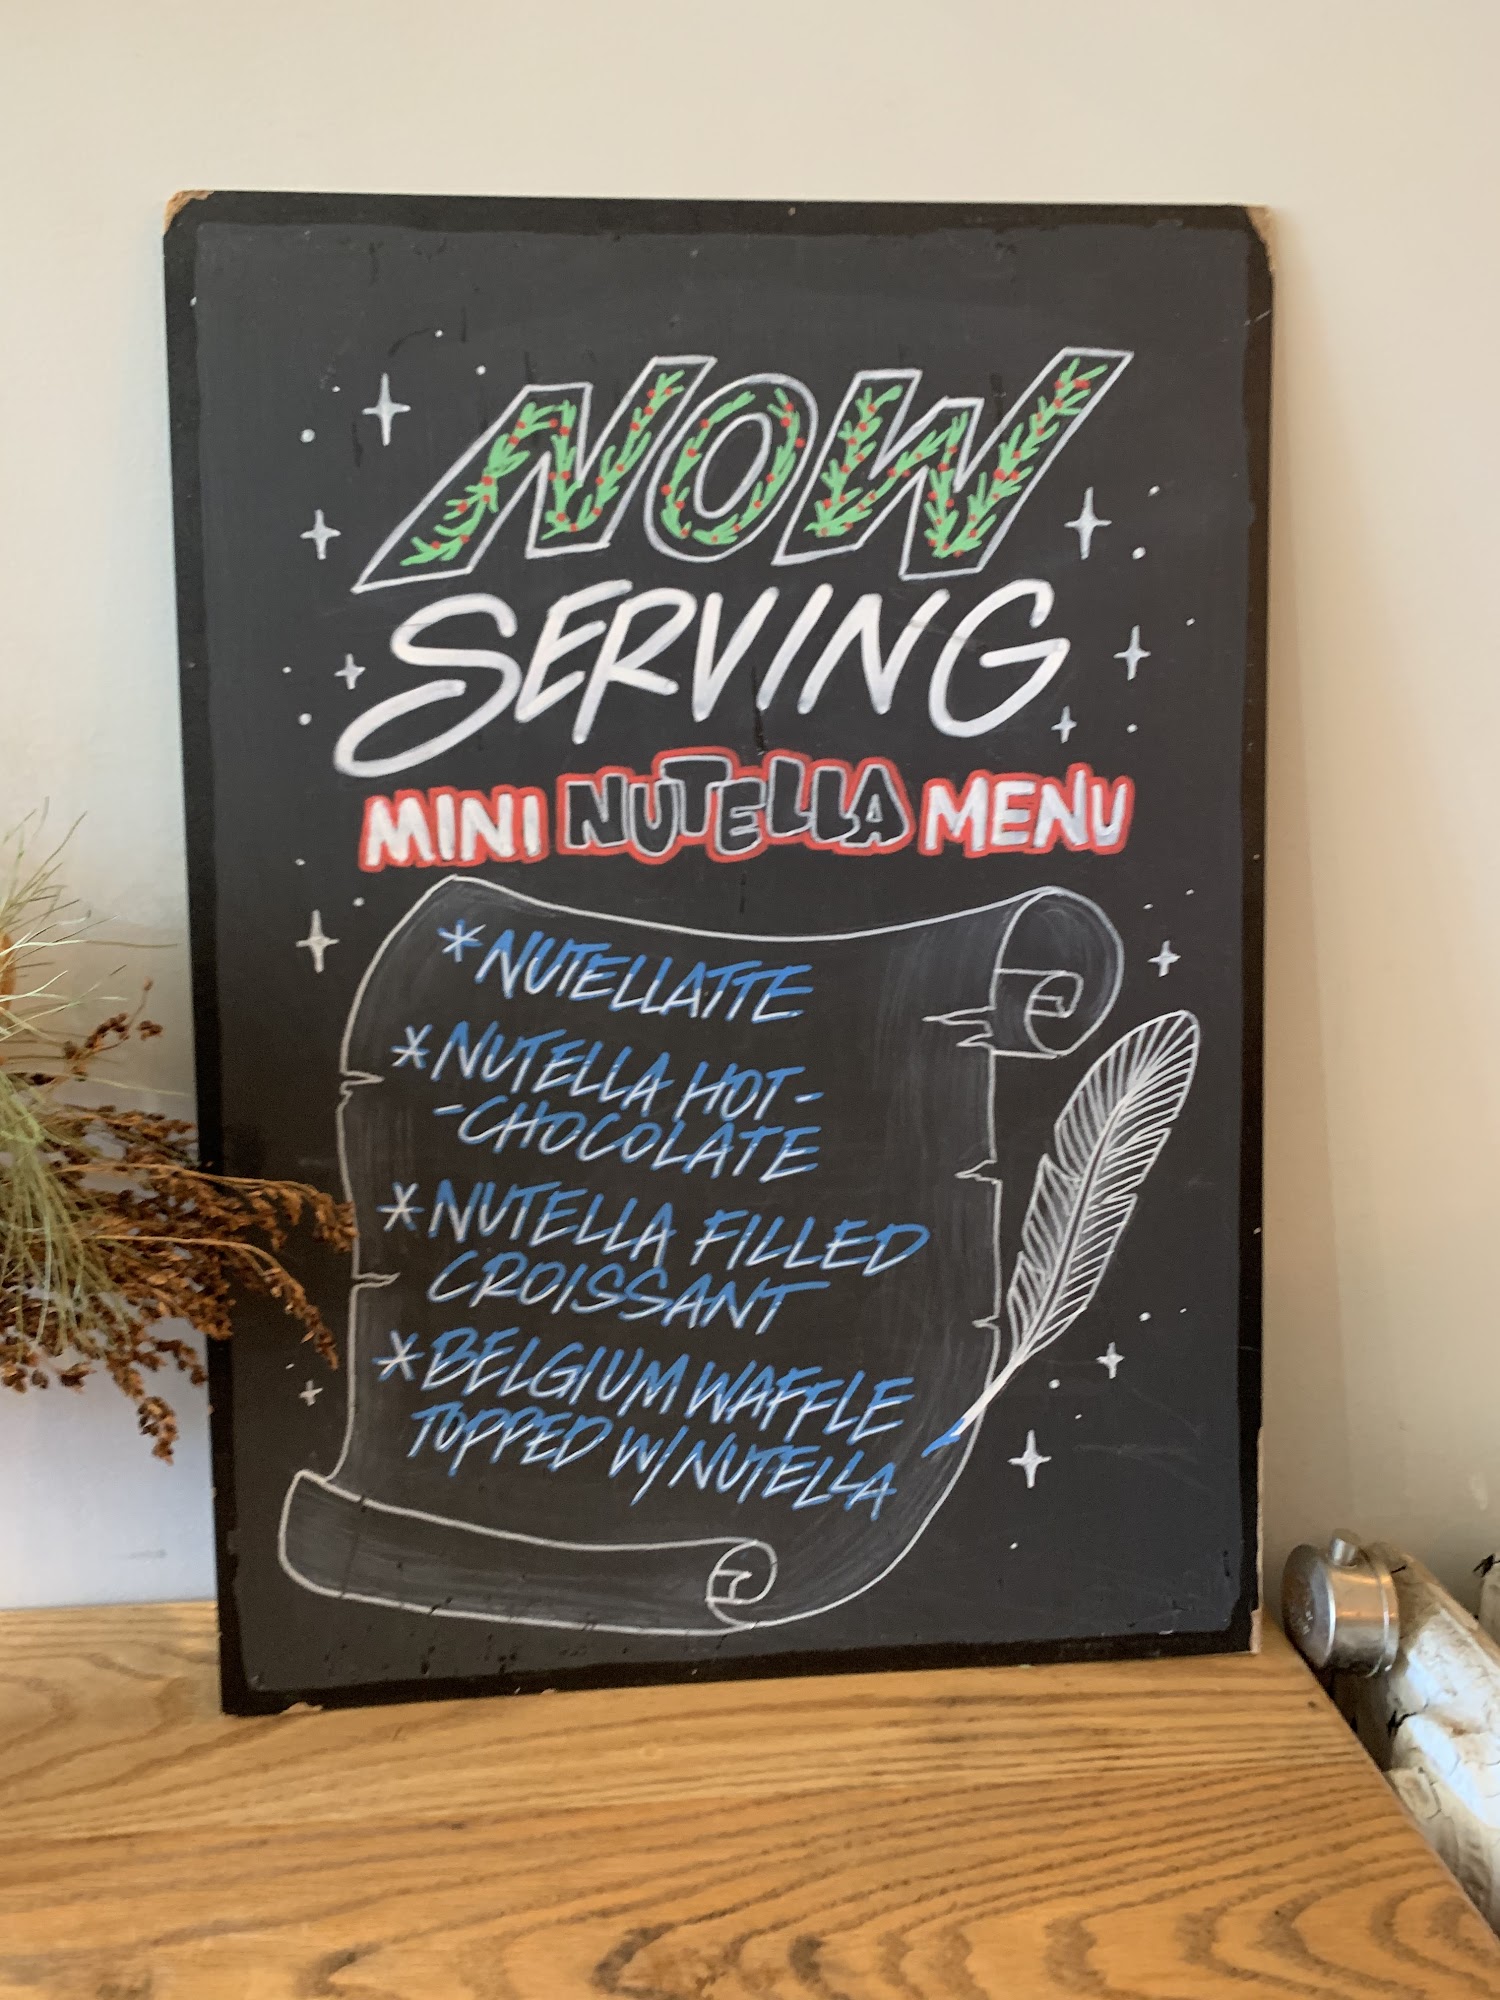 NOW
SERVING
MINI NUTELLA MENU
*NUTELLATTE
*NUTELLA HOT-
-CHOCOLATE
*NUTELLA FILLED
CROISSANT
*BELGIUM WAFFLE
TOPPED W/NUTELLA